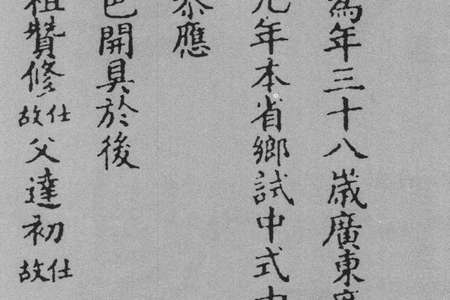 為年三十八歲廣東
九年本省鄉試中式
應
色開具於後
祖贊修仕故父達初仕故